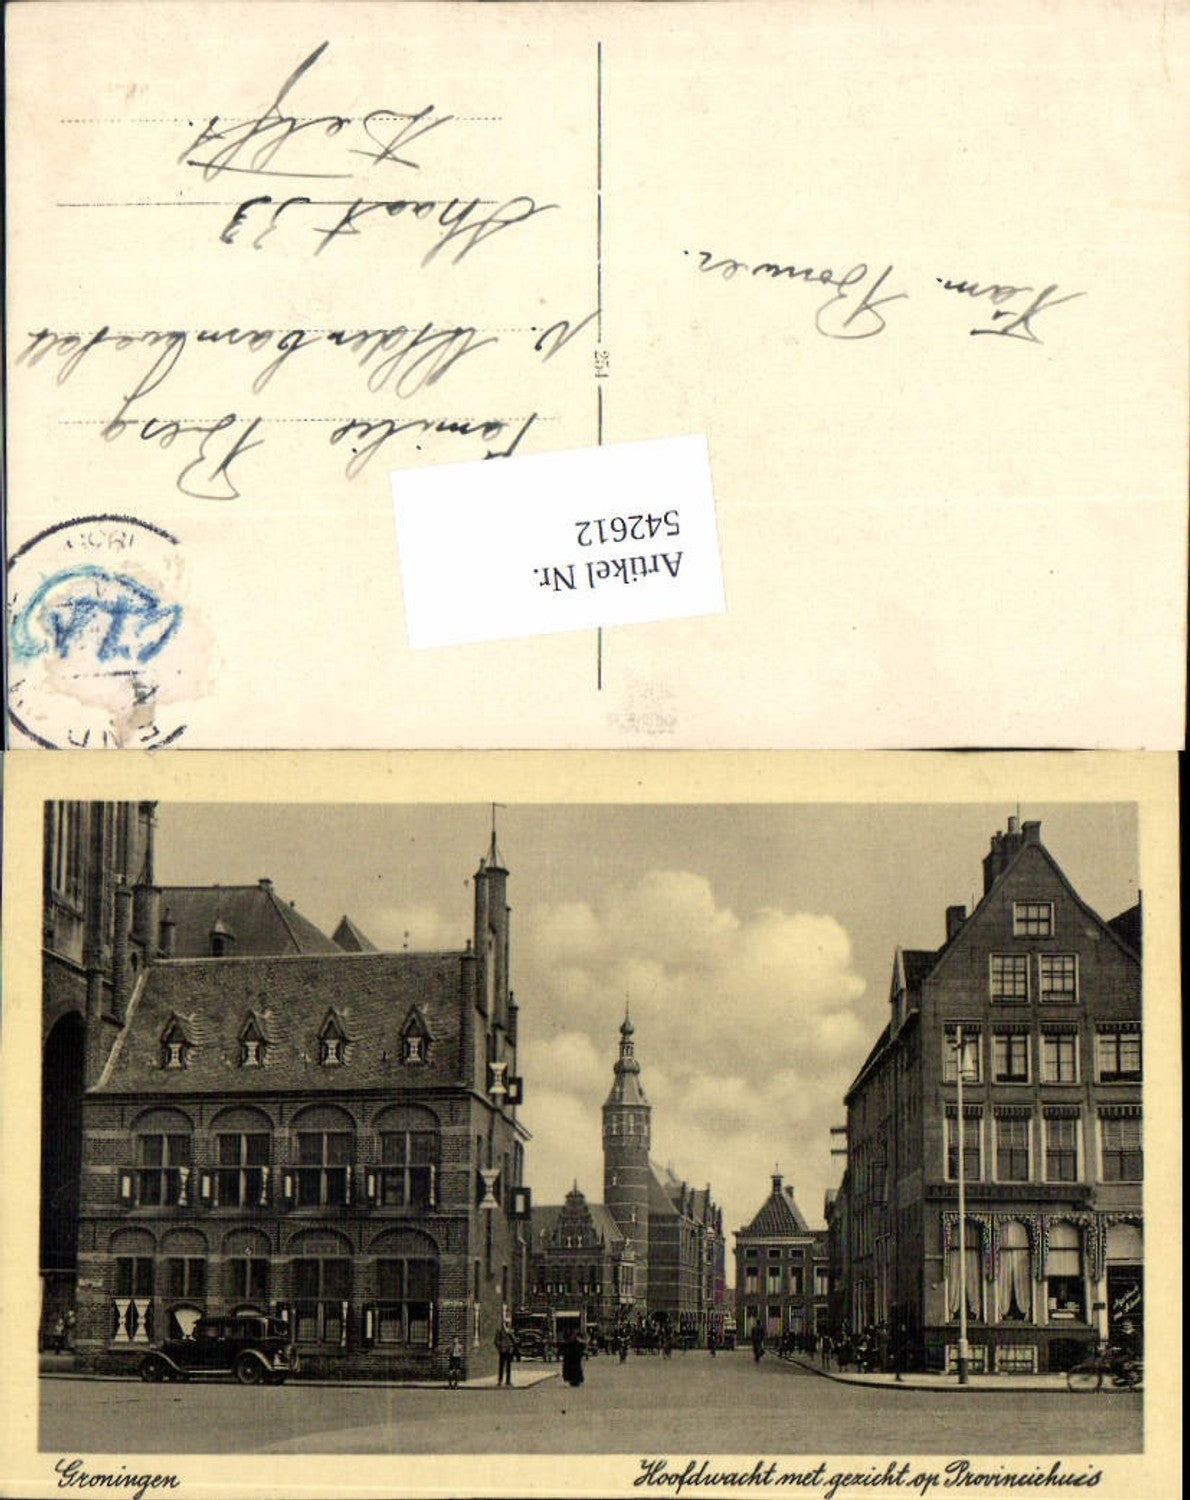 Fam. Bouwer.
Familie Berg
v. Oldenbarneveldt
Straat 33
Delft.
254
Artikel Nr.
542612
Groningen
Hoofdwacht met gezicht op Provinciehuis